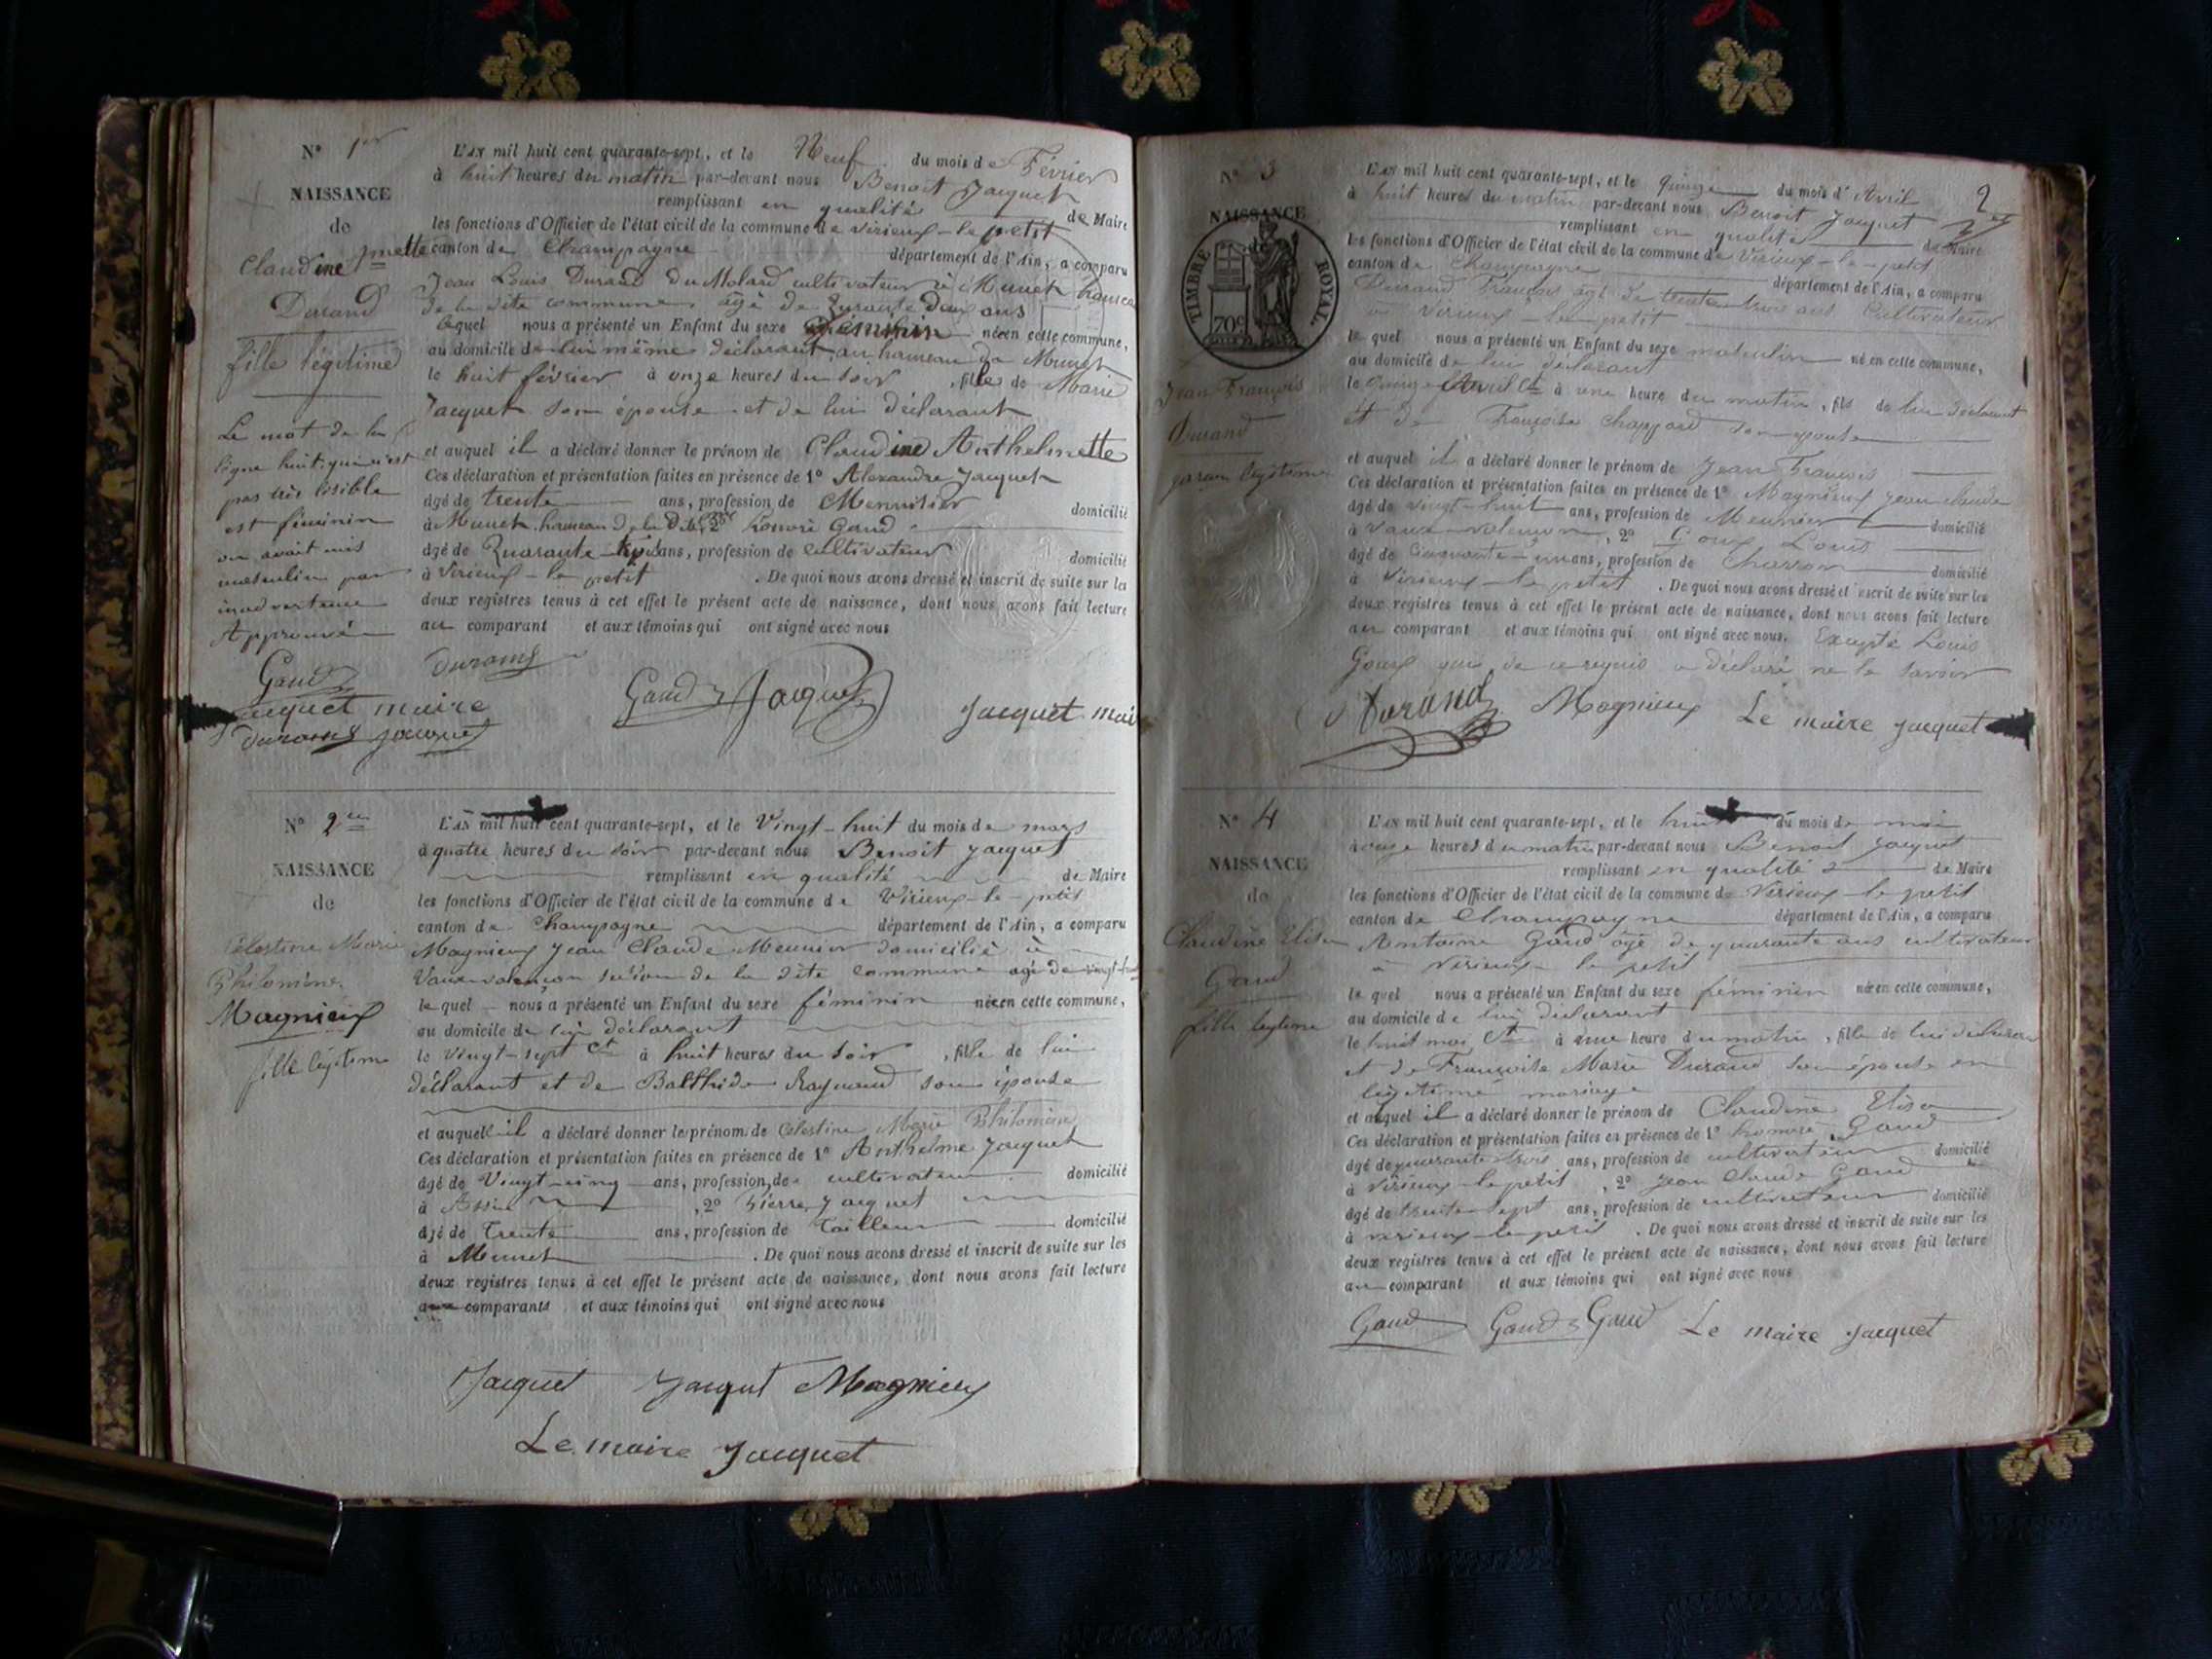 N° 1er
NAISSANCE
de
Claudine
Durand
fille légitime
Le mot de la
ligne huit qui n'est
pas très lisible
est féminin
on avait mis
masculin par
inadvertence
Approuvé
Gaud
Jacquet maire
Durand Jacquet
L'AN mil huit cent quarante-sept, et le Neuf du mois de Février
à huit heures du matin par-devant nous Benoit Jacquet
remplissant en qualité de Maire
les fonctions d'Officier de l'état civil de la commune de Virieux-le-petit
canton de Champagne département de l'Ain, a comparu
Jean Louis Durand du Molard cultivateur à Munet hameau
de la dite commune, âgé de quarante deux ans
lequel nous a présenté un Enfant du sexe féminin née en cette commune,
au domicile de lui même déclarant au hameau de Munet
le huit février à onze heures du soir, fille de Marie
Jacquet son épouse et de lui déclarant
et auquel il a déclaré donner le prénom de Claudine Anthelmette
Ces déclaration et présentation faites en présence de 1° Alexandre Jacquet
âgé de trente ans, profession de Menuisier domicilié
à Munet hameau de la dite, 2° honoré Gaud
âgé de Quarante ans, profession de cultivateur domicilié
à Virieux-le petit. De quoi nous avons dressé et inscrit de suite sur les
deux registres tenus à cet effet le présent acte de naissance, dont nous avons fait lecture
au comparant et aux témoins qui ont signé avec nous
Durand
Gaud Jacquet Jacquet mai
N° 2
NAISSANCE
de
Célestine Marie
Philomène
Magnieux
fille légitime
L'AN mil huit cent quarante-sept, et le Vingt-huit du mois de mars
à quatre heures du soir par-devant nous Benoit Jacquet
remplissant en qualité de Maire
les fonctions d'Officier de l'état civil de la commune de Virieux-le-petit
canton de Champagne département de l'Ain, a comparu
Magnieux Jean Claude Meunier domicilié à
section de la dite commune âgé de vingt-huit
le quel nous a présenté un Enfant du sexe féminin née en cette commune,
au domicile de lui déclarant
le vingt-sept ct à huit heures du soir, fille de lui
déclarant et de Balthide Raynaud son épouse
et auquel il a déclaré donner le prénom de Célestine Marie Philomène
Ces déclaration et présentation faites en présence de 1° Anthelme Jacquet
âgé de Vingt-cinq ans, profession de cultivateur domicilié
à Assin, 2° Pierre Jacquet
âgé de Trente ans, profession de Tailleur domicilié
à Munet. De quoi nous avons dressé et inscrit de suite sur les
deux registres tenus à cet effet le présent acte de naissance, dont nous avons fait lecture
aux comparants et aux témoins qui ont signé avec nous
Jacquet Jacquet Magnieux
Le maire Jacquet
2
N° 3
NAISSANCE
TIMBRE ROYAL
70c
Jean François
Durand
garçon légitime
L'AN mil huit cent quarante-sept, et le quinze du mois d'Avril
à huit heures du matin par-devant nous Benoit Jacquet
remplissant en qualité de Maire
les fonctions d'Officier de l'état civil de la commune de Virieux-le-petit
canton de Champagne département de l'Ain, a comparu
Durand François âgé de trente-trois ans Cultivateur
à Virieux-le-petit
le quel nous a présenté un Enfant du sexe masculin né en cette commune,
au domicile de lui déclarant
le quinze Avril ct à une heure du matin, fils de lui déclarant
et de Françoise Chappard son épouse
et auquel il a déclaré donner le prénom de Jean François
Ces déclaration et présentation faites en présence de 1° Magnieux Jean Claude
âgé de vingt-huit ans, profession de Meunier domicilié
à, 2° Goux Louis
âgé de Cinquante-un ans, profession de Charron domicilié
à Virieux-le-petit. De quoi nous avons dressé et inscrit de suite sur les
deux registres tenus à cet effet le présent acte de naissance, dont nous avons fait lecture
au comparant et aux témoins qui ont signé avec nous. Excepté Louis
Goux qui de ce requis a déclaré ne le savoir
Durand Magnieux Le maire Jacquet
N° 4
NAISSANCE
de
Claudine Elisa
Gaud
fille légitime
L'AN mil huit cent quarante-sept, et le huit du mois de mai
à onze heures du matin par-devant nous Benoit Jacquet
remplissant en qualité de Maire
les fonctions d'Officier de l'état civil de la commune de Virieux-le-petit
canton de Champagne département de l'Ain, a comparu
Antoine Gaud âgé de quarante ans cultivateur
à Virieux-le petit
le quel nous a présenté un Enfant du sexe féminin née en cette commune,
au domicile de lui déclarant
le huit mai ct à une heure du matin, fille de lui déclarant
et de Françoise Marie Durand son épouse en
légitime mariage
et auquel il a déclaré donner le prénom de Claudine Elisa
Ces déclaration et présentation faites en présence de 1° honoré Gaud
âgé de quarante trois ans, profession de cultivateur domicilié
à Virieux-le petit, 2° Jean Claude Gaud
âgé de trente sept ans, profession de cultivateur domicilié
à Virieux-le-petit. De quoi nous avons dressé et inscrit de suite sur les
deux registres tenus à cet effet le présent acte de naissance, dont nous avons fait lecture
au comparant et aux témoins qui ont signé avec nous
Gaud Gaud Gaud Le maire Jacquet